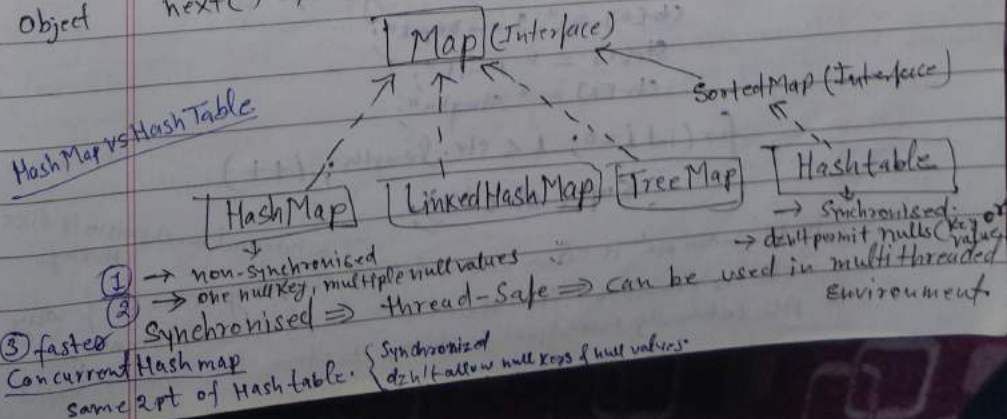 Object next( )
Map (Interface)
SortedMap (Interface)
HashMap vs HashTable
HashMap LinkedHashMap TreeMap Hashtable
→ non-synchronised → Synchronised.
① → one null key, multiple null values → permit nulls (key or value)
② Synchronised ⇒ thread-Safe ⇒ can be used in multithreaded
Environment.
③ faster
Concurrent Hashmap
same 2pt of Hashtable. { Synchronized
allow null keys & null values.